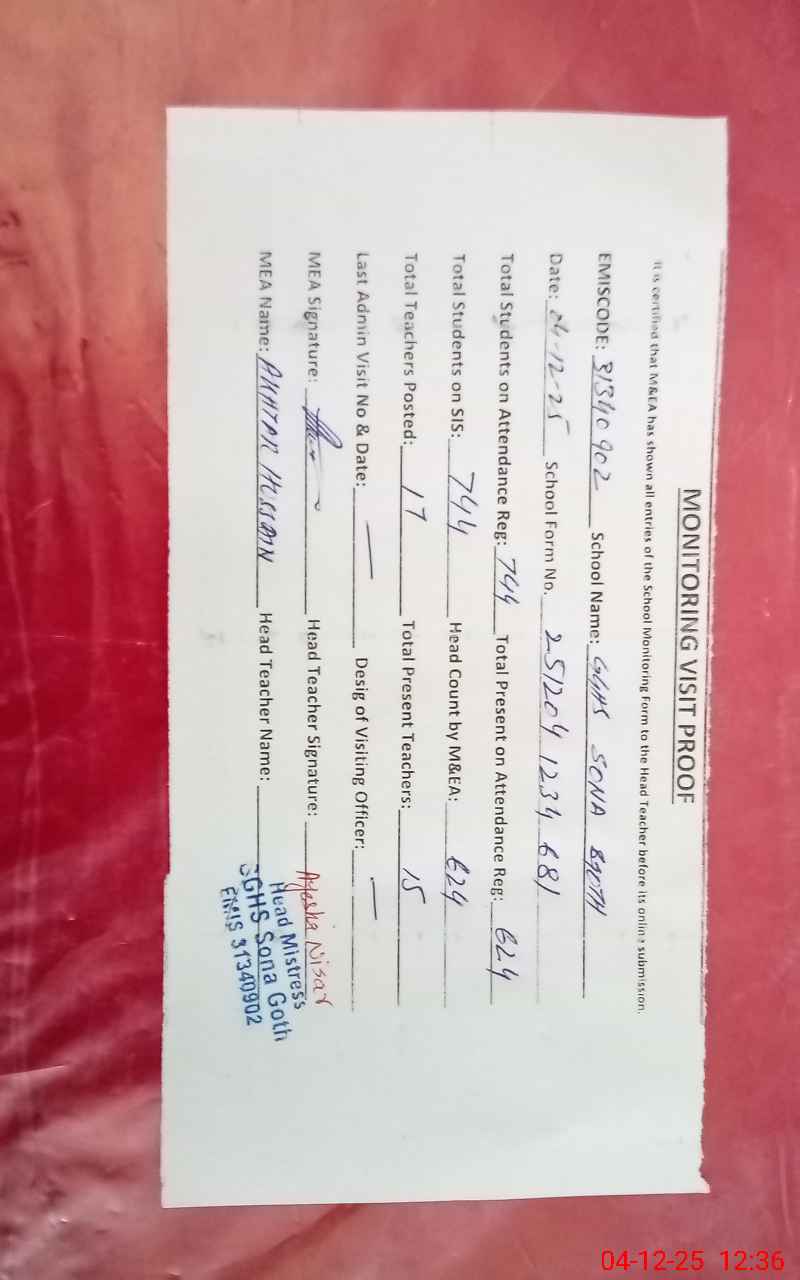 MONITORING VISIT PROOF
It is certified that M&EA has shown all entries of the School Monitoring Form to the Head Teacher before its online submission.
EMISCODE: 31340902 School Name: GGHS SONA GOTH
Date: 04-12-25 School Form No. 251204 1234 681
Total Students on Attendance Reg: 744 Total Present on Attendance Reg: 624
Total Students on SIS: 744 Head Count by M&EA: 624
Total Teachers Posted: 17 Total Present Teachers: 15
Last Admin Visit No & Date: — Desig of Visiting Officer: —
MEA Signature: Head Teacher Signature: Ayesha Nisar
MEA Name: AKHTAR HUSSAIN Head Teacher Name:
Head Mistress
GGHS Sona Goth
EMIS 31340902
04-12-25 12:36